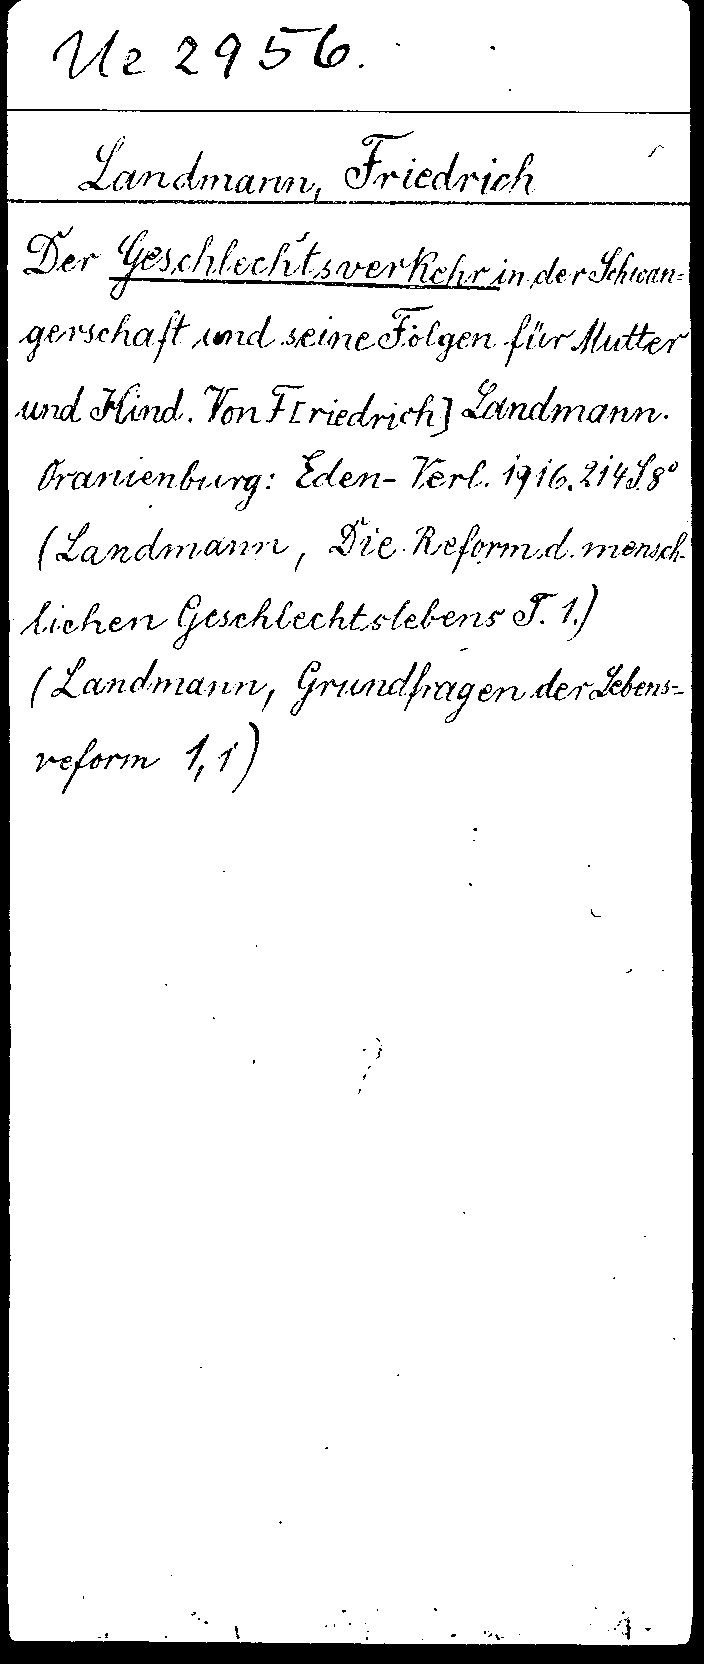 Uz 2956.
Landmann, Friedrich
Der Geschlechtsverkehr in der Schwan=
gerschaft und seine Folgen für Mutter
und Kind. Von F[riedrich] Landmann.
Oranienburg: Eden-Verl. 1916. 214 S. 8°
(Landmann, Die Reform d. mensch-
lichen Geschlechtslebens T. 1.)
(Landmann, Grundfragen der Lebens=
reform 1,1)